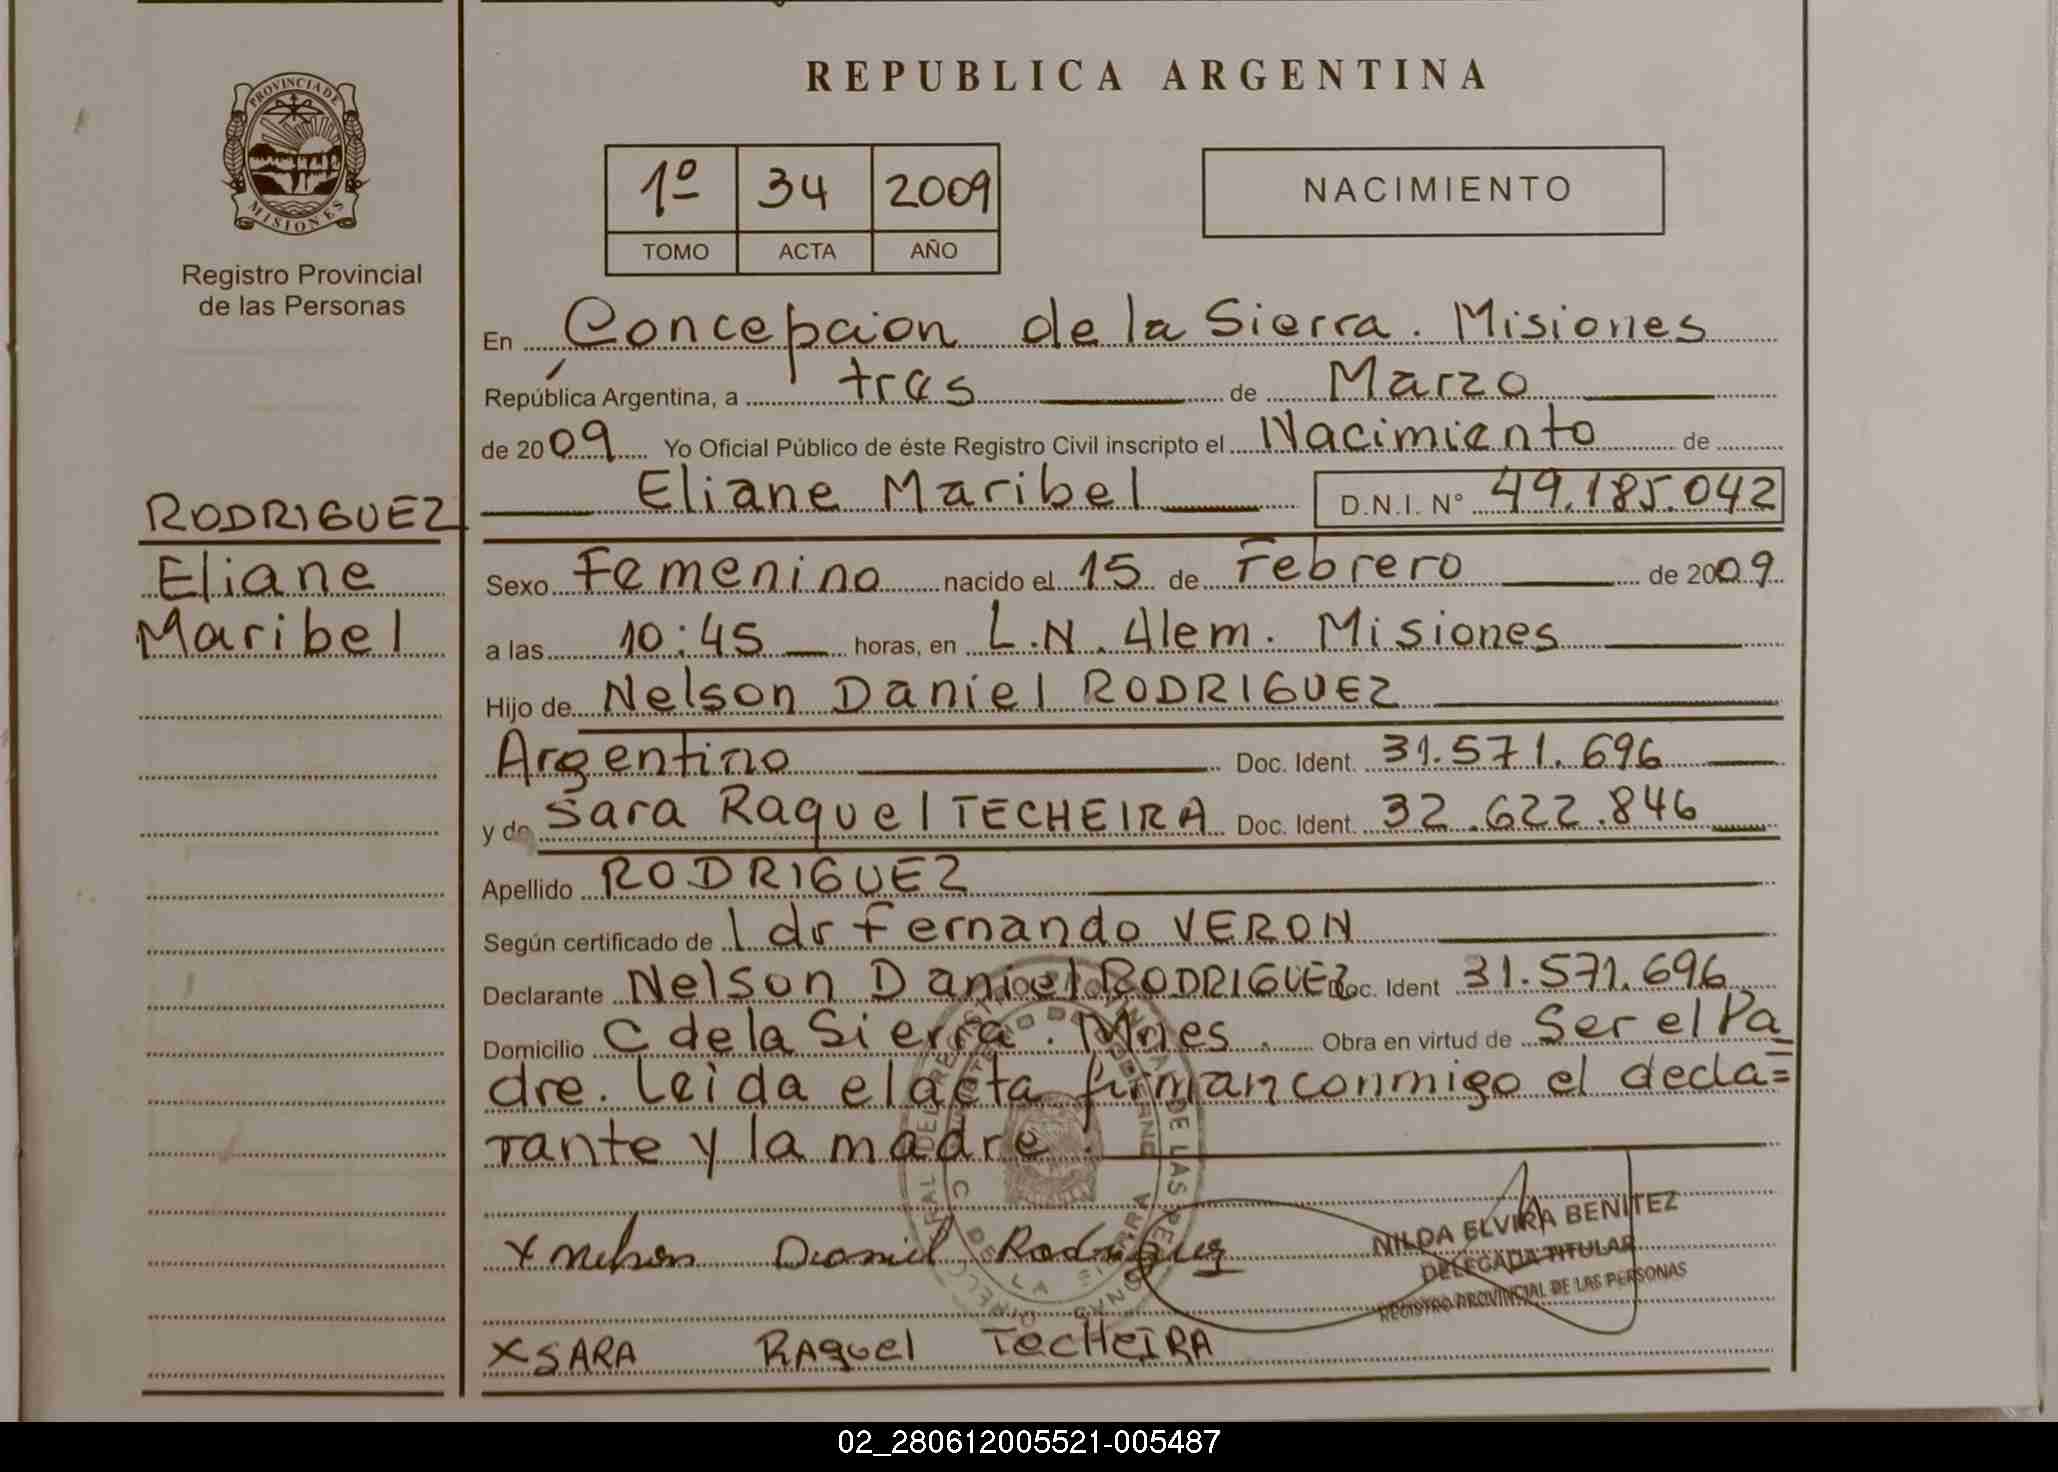 PROVINCIA DE
MISIONES
Registro Provincial
de las Personas
RODRIGUEZ
Eliane
Maribel
REPUBLICA ARGENTINA
1º 34 2009
TOMO ACTA AÑO
NACIMIENTO
En Concepcion de la Sierra. Misiones
República Argentina, a tres de Marzo
de 2009 Yo Oficial Público de éste Registro Civil inscripto el Nacimiento de
Eliane Maribel D.N.I. N° 49.185.042
Sexo Femenino nacido el 15 de Febrero de 2009
a las 10:45 horas, en L.N. Alem. Misiones
Hijo de Nelson Daniel RODRIGUEZ
Argentino Doc. Ident. 31.571.696
y de Sara Raquel TECHEIRA Doc. Ident. 32.622.846
Apellido RODRIGUEZ
Según certificado de l dr Fernando VERON
Declarante Nelson Daniel RODRIGUEZ Doc. Ident 31.571.696
Domicilio C de la Sierra. Mnes. Obra en virtud de Ser el Pa
dre. Leida el acta firman conmigo el decla=
rante y la madre.
NILDA ELVIRA BENITEZ
DELEGADA TITULAR
REGISTRO PROVINCIAL DE LAS PERSONAS
X Nelson Daniel Rodriguez
X SARA RAquel TecHeIRA
02_280612005521-005487